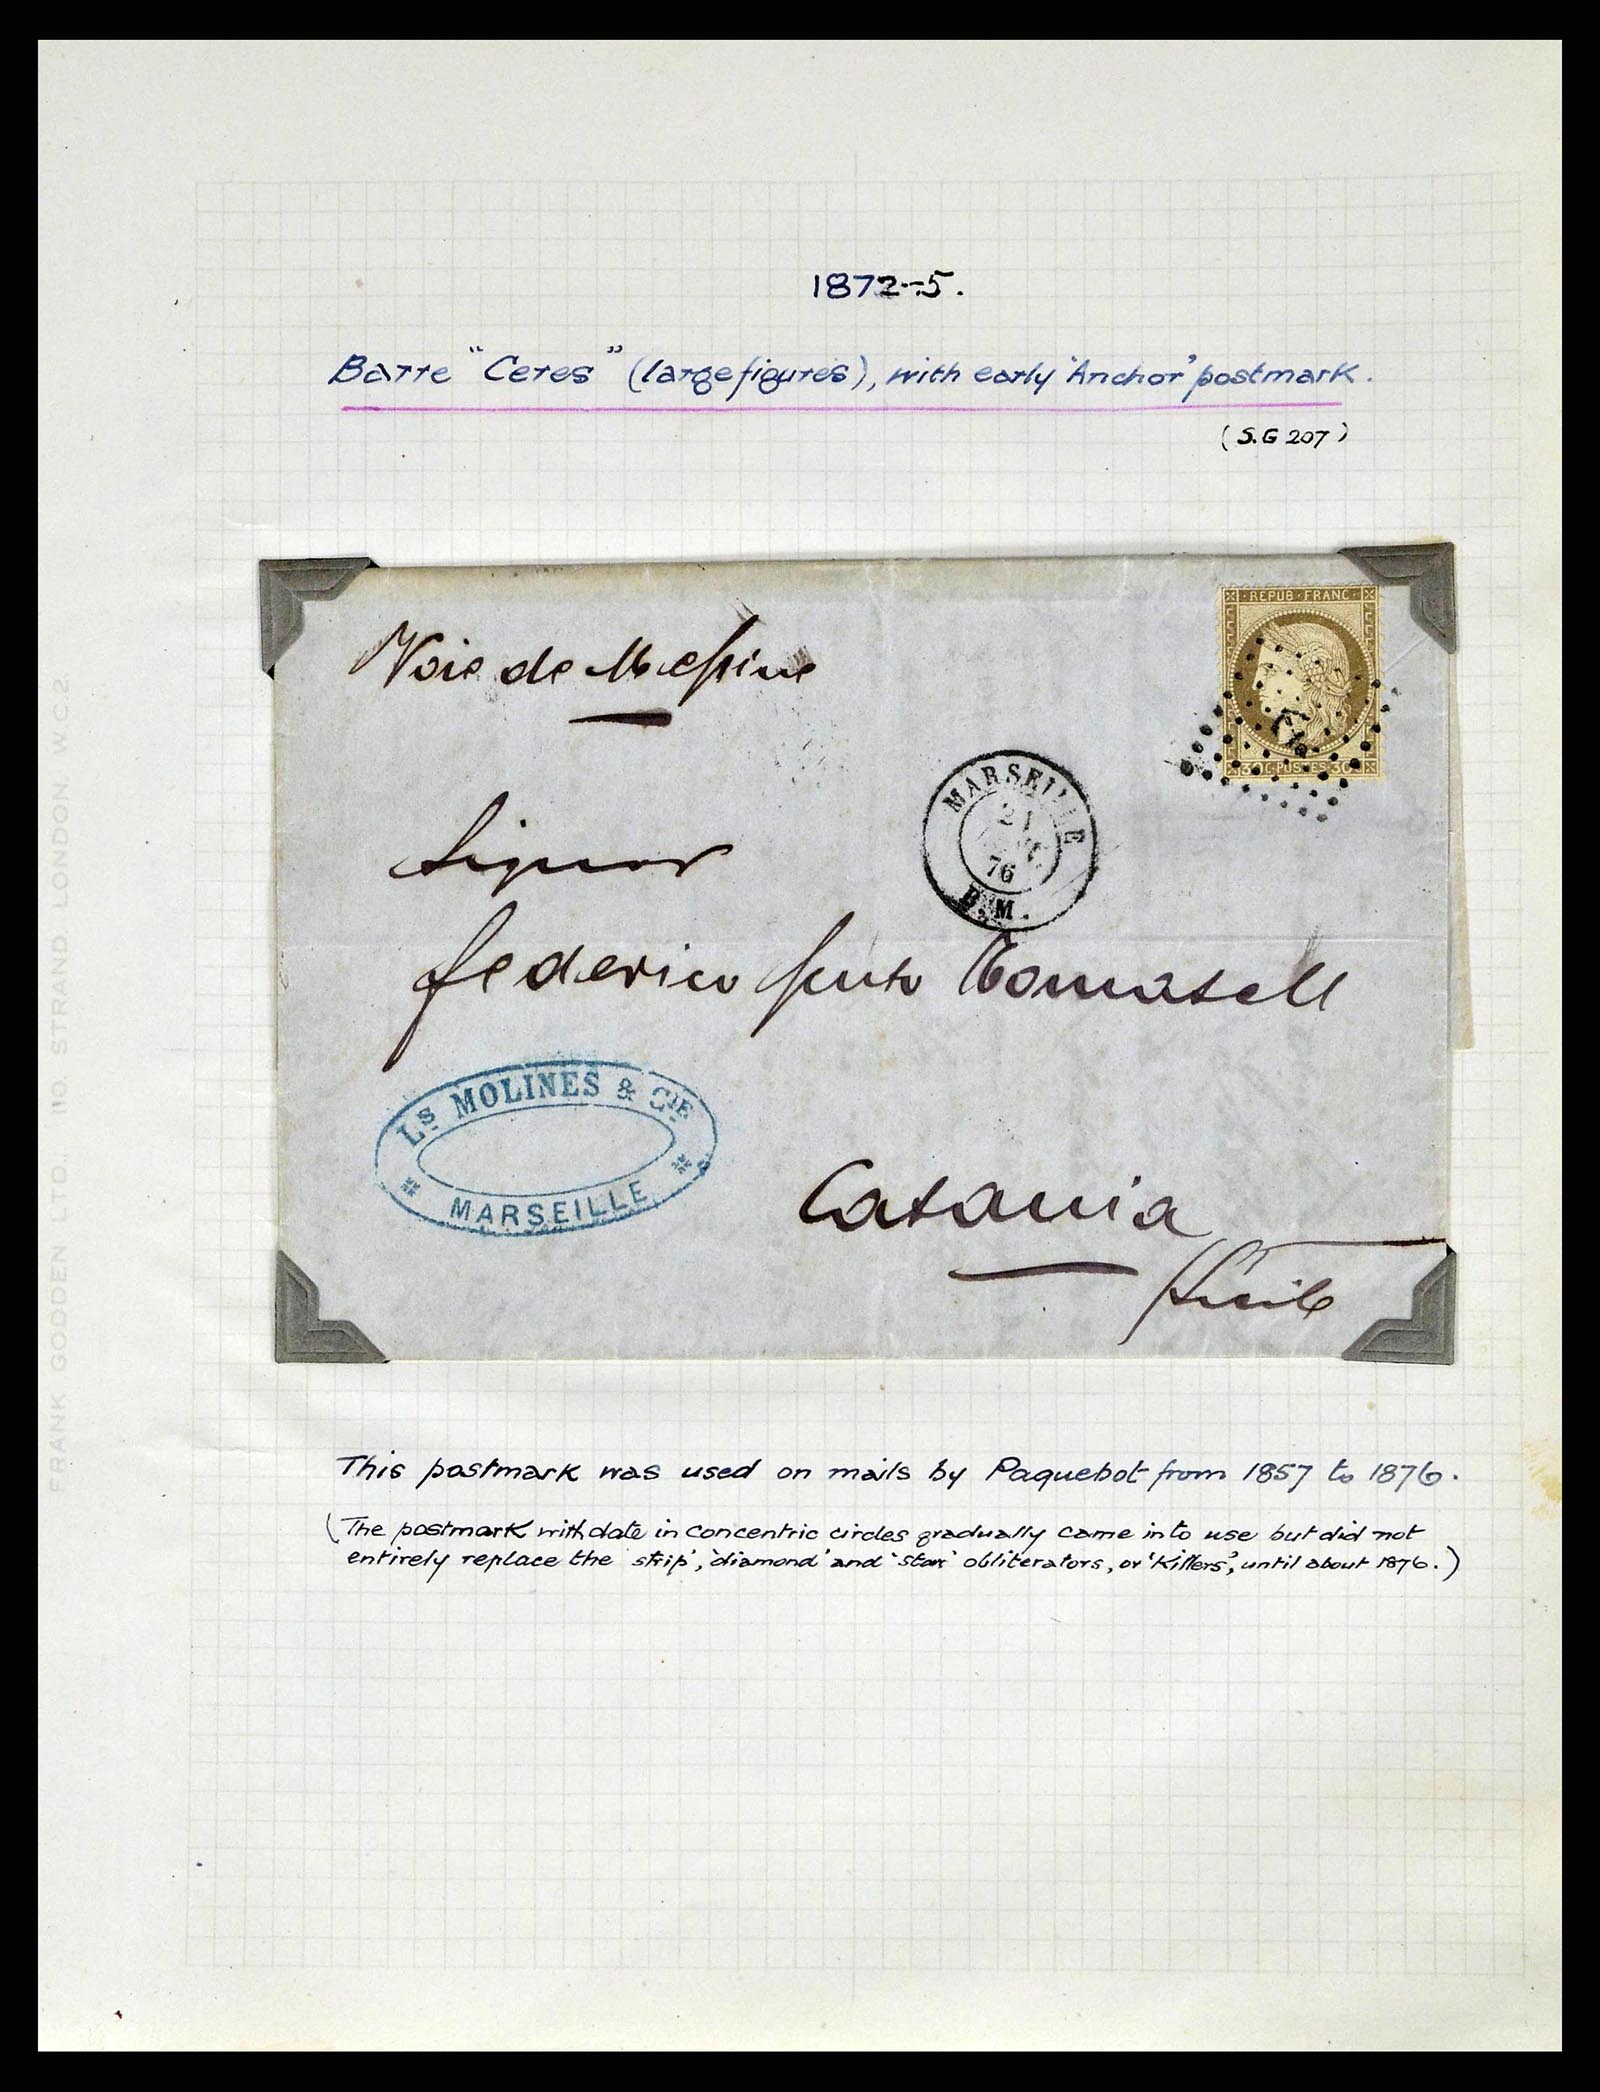 1872-5.
Barre "Ceres" (large figures), with early 'Anchor' postmark.
(S.G 207)
REPUB FRANC
30 C POSTES 30
Voie de Messine
MARSEILLE
21
76
B. M.
Signor
Federico
LS MOLINES & CIE
MARSEILLE
Catania
Sicile
This postmark was used on mails by Paquebot from 1857 to 1876.
(The postmark with date in concentric circles gradually came into use but did not
entirely replace the 'strip', 'diamond' and 'star' obliterators, or 'Killers', until about 1876.)
FRANK GODDEN LTD., 110, STRAND, LONDON, W.C.2.